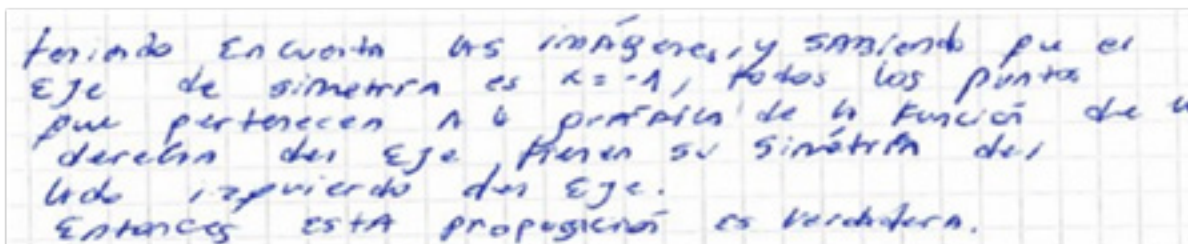 teniendo En cuenta las imágenes, y sabiendo que el
Eje de simetría es x=-1, todos los puntos
que pertenecen a la gráfica de la función de la
derecha del Eje, tienen su simétria del
lado izquierdo del Eje.
Entonces esta proposición es verdadera.